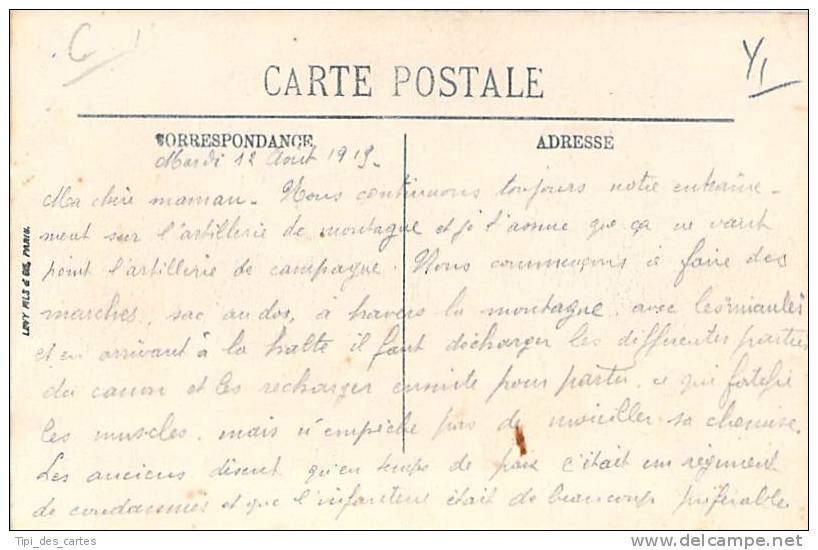 CARTE POSTALE
CORRESPONDANCE
ADRESSE
Mardi 12 Août 1919.
Ma chère maman. Nous continuons toujours notre entraîne-
ment sur l'artillerie de montagne et je t'assure que ça ne vaut
point l'artillerie de campagne. Nous commençons à faire des
marches, sac au dos, à travers la montagne, avec les mulets
et en arrivant à la halte il faut décharger les différentes parties
du canon et les recharger ensuite pour partir, ce qui fortifie
les muscles, mais n'empêche pas de mouiller sa chemise.
Les anciens disent qu'en temps de paix c'était un régiment
de condamnés et que l'infanterie était de beaucoup préférable
LEVY FILS & Cie, PARIS.
Y1
Tipi_des_cartes
delcampe.net